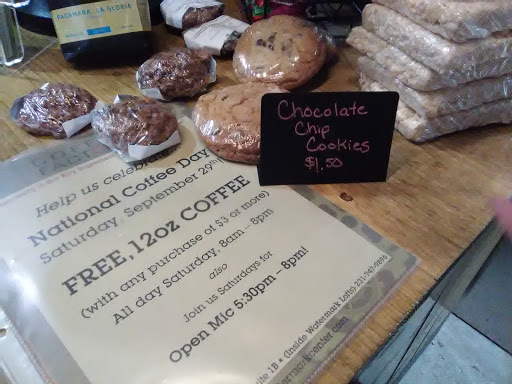 PACAMARA LA GLORIA
Chocolate
Chip
Cookies
$1.50
Help us celebrate
National Coffee Day
Saturday, September 29th
FREE, 12oz COFFEE
(with any purchase of $3 or more)
All day Saturday, 8am – 8pm
also
Join us Saturdays for
Open Mic 5:30pm – 8pm!
1B • (Inside Watermark Lofts) 231-747-9898